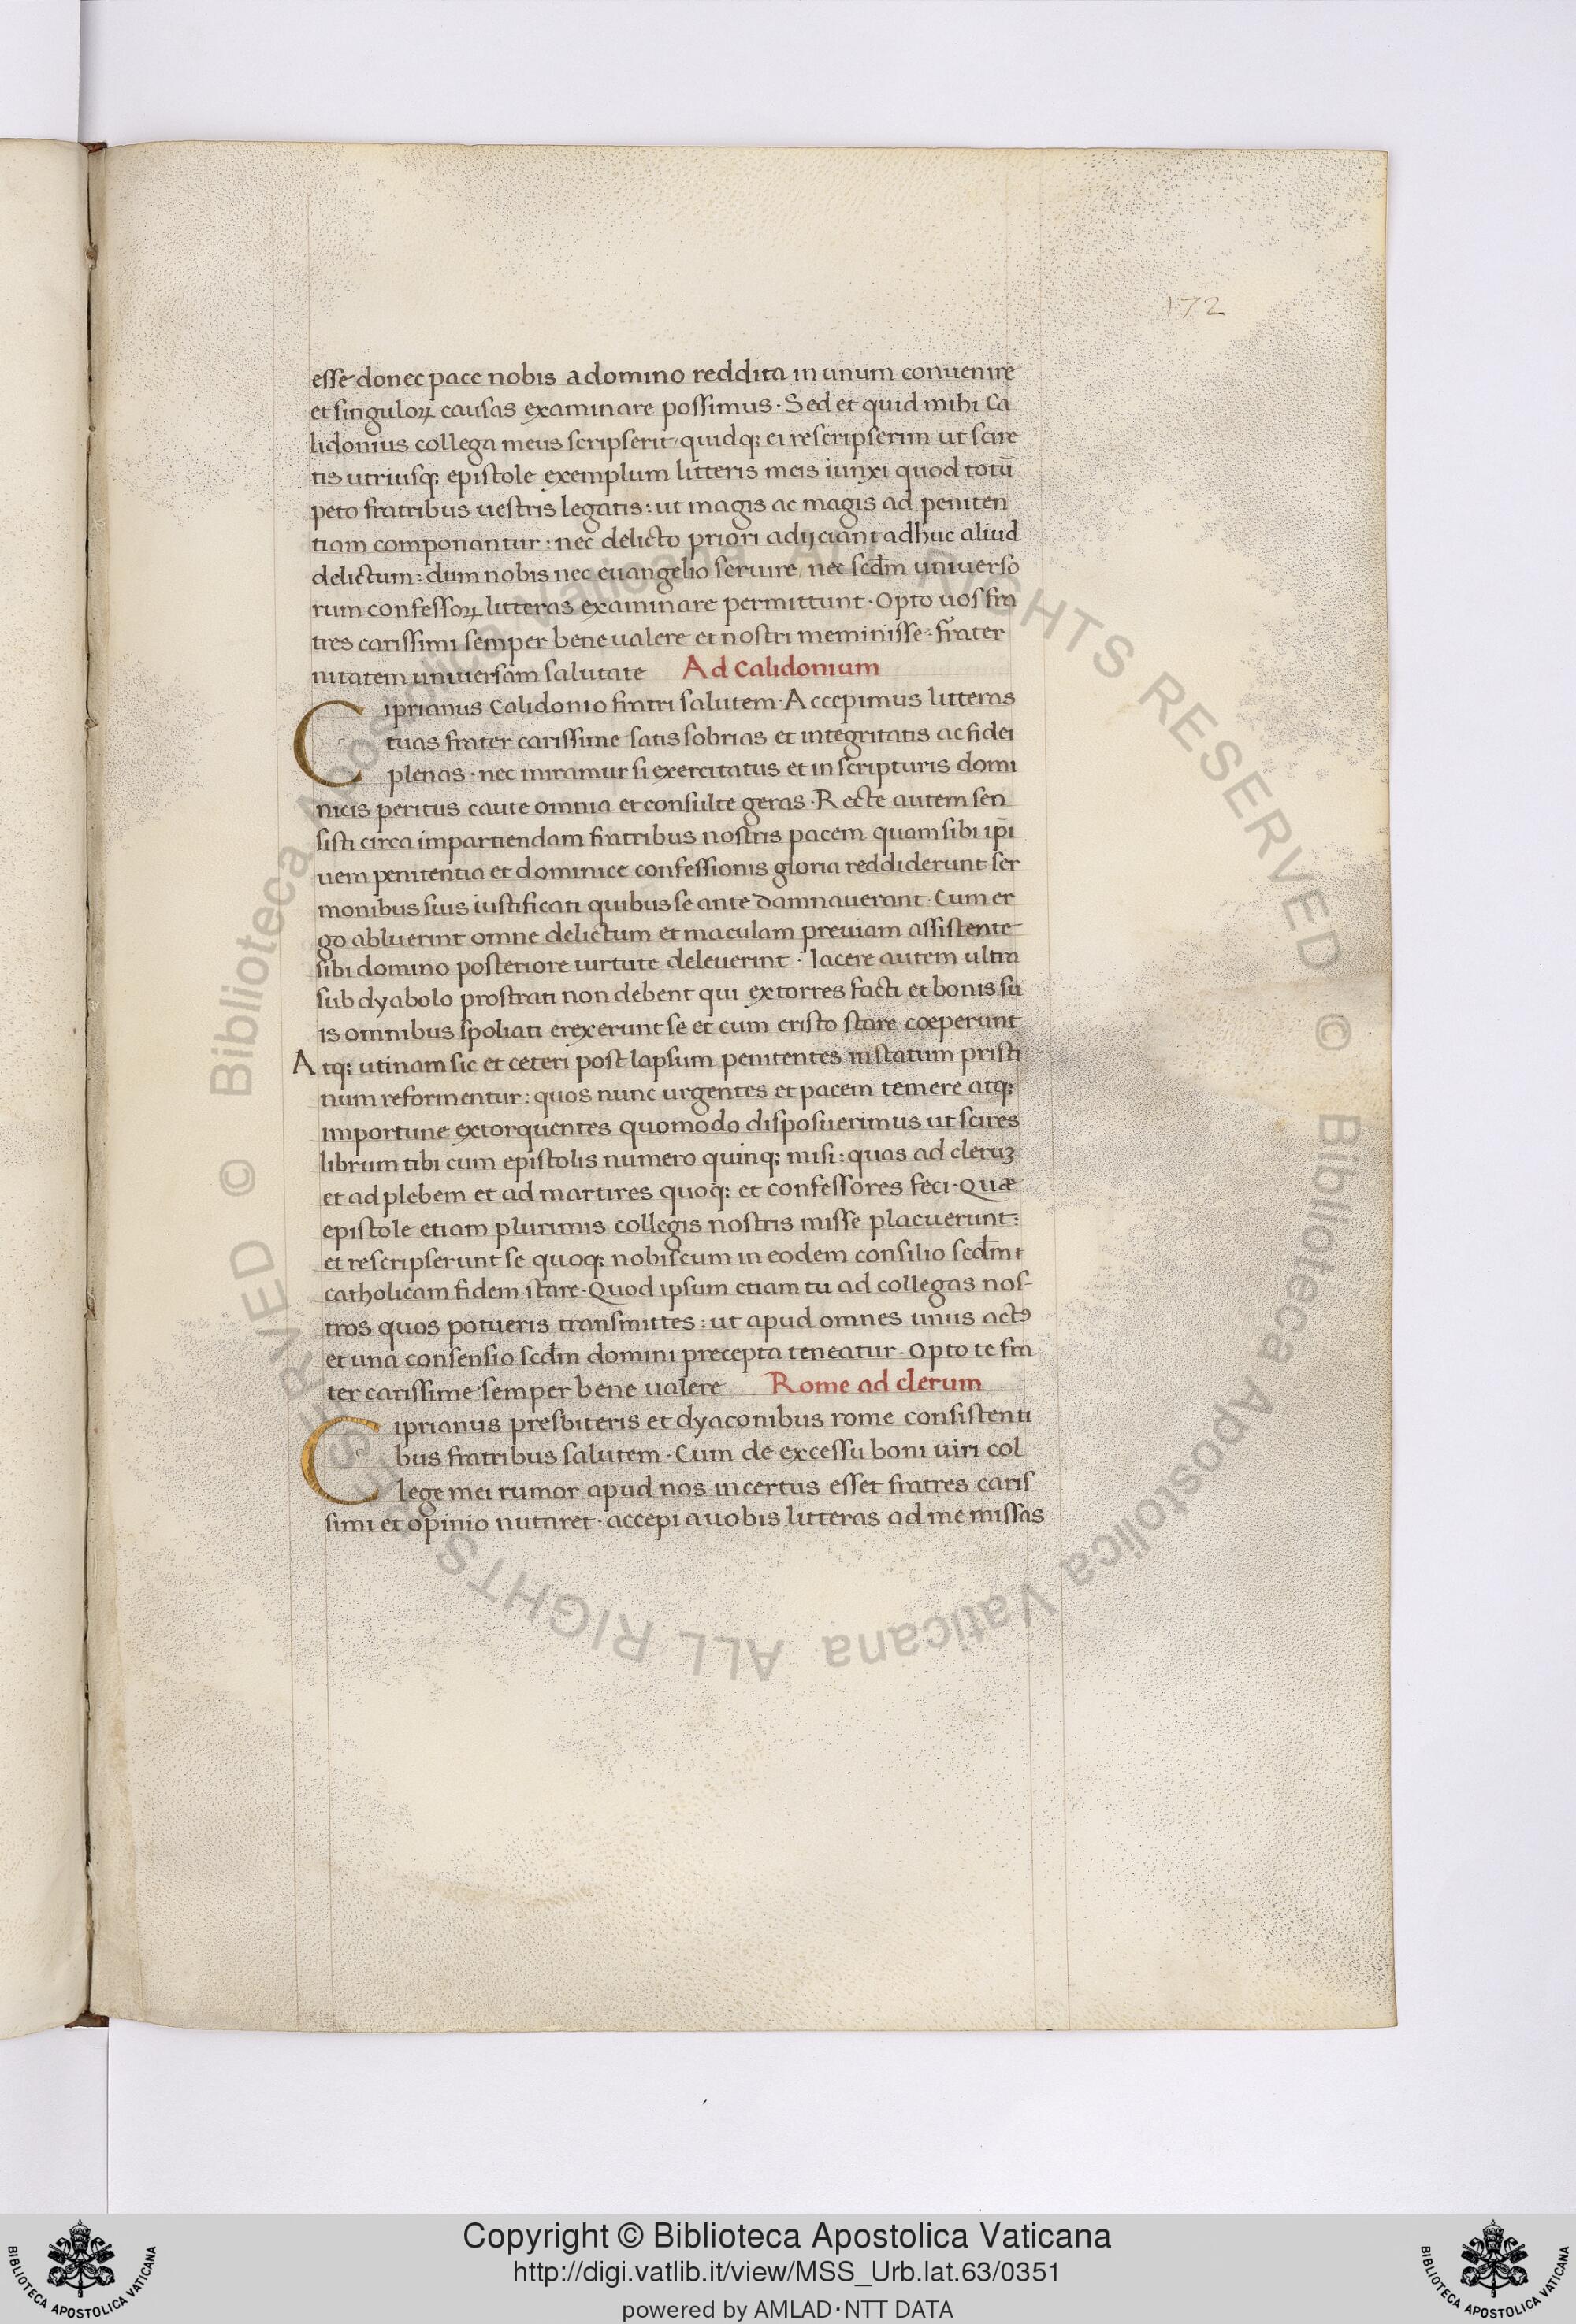 172
esse donec pace nobis a domino reddita in unum conuenire
et singuloꝝ causas examinare possimus · Sed et quid mihi Ca
lidonius collega meus scripserit / quidqꝫ ei rescripserim ut scire
tis utriusqꝫ epistole exemplum litteris meis iunxi quod totū
peto fratribus uestris legatis : ut magis ac magis ad peniten
tiam componantur : nec delicto priori adijciant adhuc aliud
delictum : dum nobis nec euangelio seruire / nec scd̄m uniuerso
rum confessoꝝ litteras examinare permittunt · Opto uos fra
tres carissimi semper bene ualere et nostri meminisse · frater
nitatem uniuersam salutate Ad Calidonium
Ciprianus Calidonio fratri salutem · Accepimus litteras
tuas frater carissime satis sobrias et integritatis ac fidei
plenas · nec miramur si exercitatus et in scripturis domi
nicis peritus caute omnia et consulte geras · Recte autem sen
sisti circa impartiendam fratribus nostris pacem quam sibi ip̄i
uem penitentia et dominice confessionis gloria reddiderunt ser
monibus suis iustificati quibus se ante damnauerant · Cum er
go abluerint omne delictum et maculam preuiam assistente
sibi domino posteriore uirtute deleuerint · Iacere autem ultra
sub dyabolo prostrati non debent qui extorres facti et bonis su
is omnibus spoliati erexerunt se et cum cristo stare coeperunt
Atqꝫ utinam sic et ceteri post lapsum penitentes in statum pristi
num reformentur : quos nunc urgentes et pacem temere atqꝫ
importune extorquentes quomodo disposuerimus ut scires
librum tibi cum epistolis numero quinqꝫ misi : quas ad cleruꝫ
et ad plebem et ad martires quoqꝫ et confessores feci · Quæ
epistole etiam plurimis collegis nostris misse placuerunt :
et rescripserunt se quoqꝫ nobiscum in eodem consilio scd̄m
catholicam fidem stare · Quod ipsum etiam tu ad collegas nos-
tros quos potueris transmittes : ut apud omnes unus actꝰ
et una consensio scd̄m domini precepta teneatur · Opto te fra
ter carissime semper bene ualere Rome ad clerum
Ciprianus presbiteris et dyaconibus rome consistenti
bus fratribus salutem · Cum de excessu boni uiri col
lege mei rumor apud nos incertus esset fratres caris
simi et opinio nutaret · accepi a uobis litteras ad me missas
© Biblioteca Apostolica Vaticana ALL RIGHTS RESERVED © Biblioteca Apostolica Vaticana ALL RIGHTS RESERVED
Copyright © Biblioteca Apostolica Vaticana
http://digi.vatlib.it/view/MSS_Urb.lat.63/0351
powered by AMLAD·NTT DATA
BIBLIOTECA APOSTOLICA VATICANA
BIBLIOTECA APOSTOLICA VATICANA